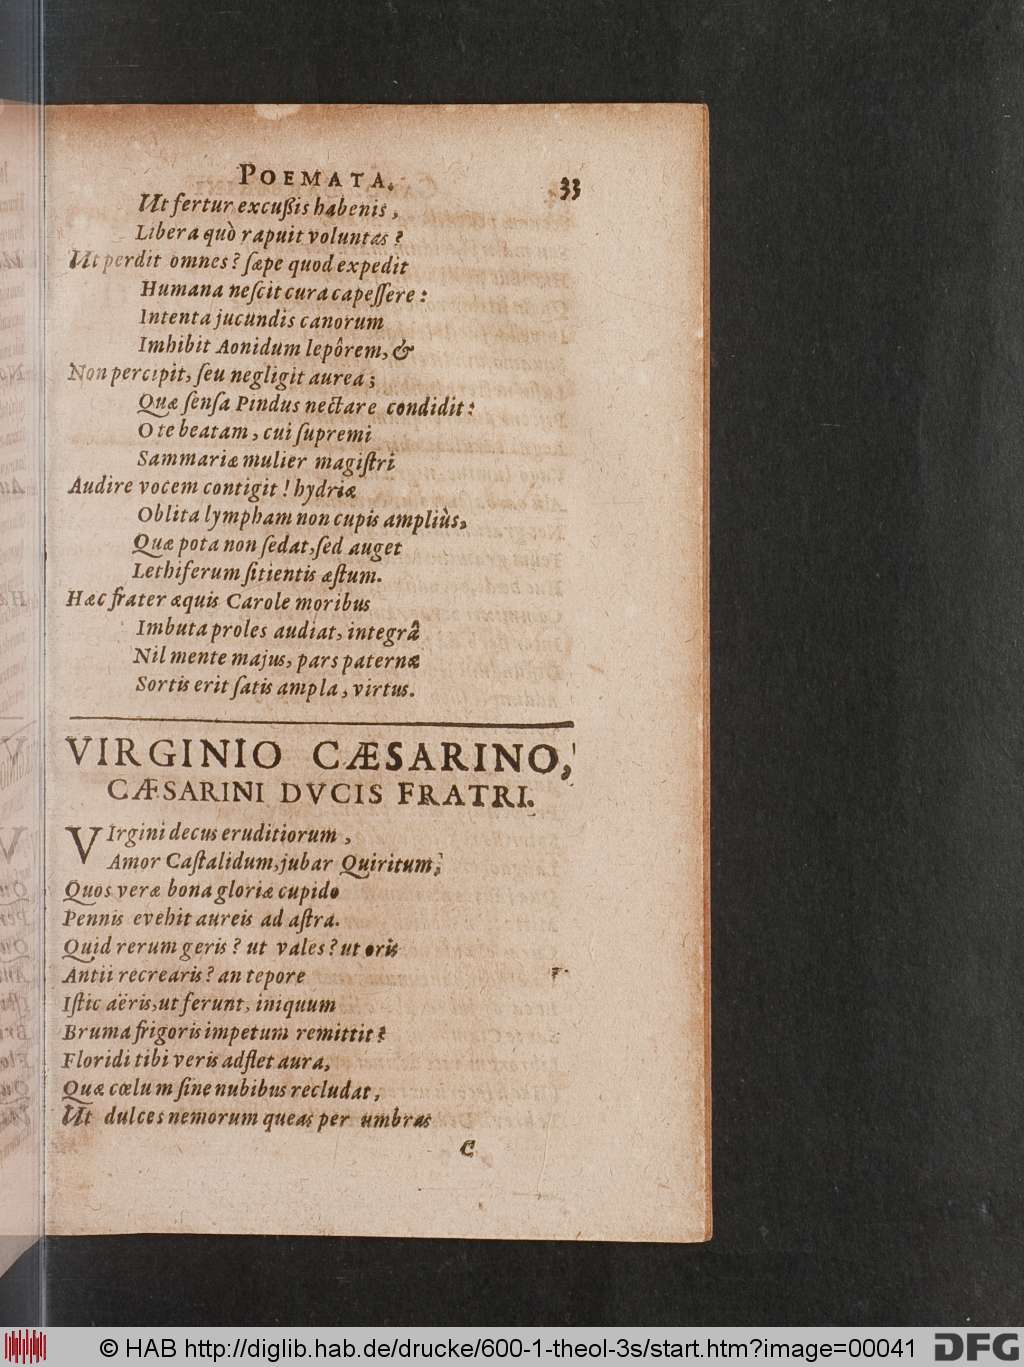 POEMATA. 33
Ut fertur excuſſis habenis,
Libera quò rapuit voluntas?
Ut perdit omnes? ſæpe quod expedit
Humana neſcit cura capeſſere:
Intenta jucundis canorum
Imhibit Aonidum lepôrem, &
Non percipit, ſeu negligit aurea;
Quæ ſenſa Pindus nectare condidit:
O te beatam, cui ſupremi
Sammariæ mulier magiſtri
Audire vocem contigit! hydriæ
Oblita lympham non cupis ampliùs,
Quæ pota non ſedat, ſed auget
Lethiferum ſitientis æſtum.
Hæc frater æquis Carole moribus
Imbuta proles audiat, integrâ
Nil mente majus, pars paternæ
Sortis erit ſatis ampla, virtus.
VIRGINIO CÆSARINO,
CÆSARINI DVCIS FRATRI.
VIrgini decus eruditiorum,
Amor Caſtalidum, jubar Quiritum,
Quos veræ bona gloriæ cupido
Pennis evehit aureis ad aſtra.
Quid rerum geris? ut vales? ut oris
Antii recrearis? an tepore
Iſtic aëris, ut ferunt, iniquum
Bruma frigoris impetum remittit?
Floridi tibi veris adflet aura,
Quæ cœlum ſine nubibus recludat,
Ut dulces nemorum queas per umbras
C
© HAB http://diglib.hab.de/drucke/600-1-theol-3s/start.htm?image=00041
DFG